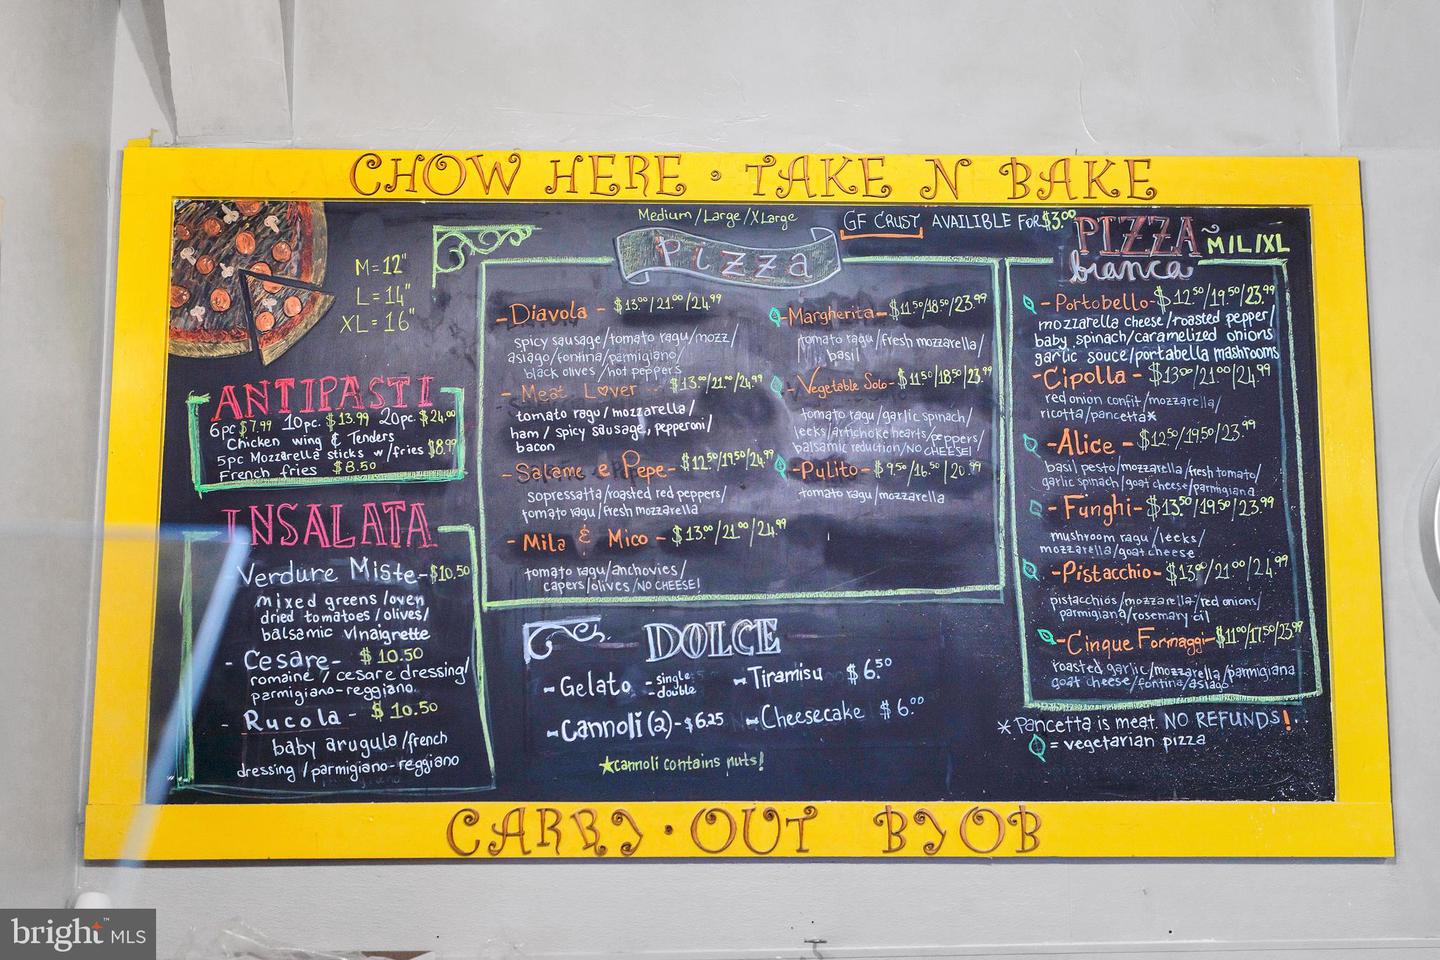 CHOW HERE · TAKE N BAKE
M = 12"
L = 14"
XL = 16"
ANTIPASTI
6pc $7.99 10pc. $13.99 20pc. $24.00
Chicken wing & Tenders
5pc Mozzarella sticks w/fries $8.99
French fries $8.50
INSALATA
-Verdure Miste-$10.50
mixed greens/oven
dried tomatoes/olives/
balsamic vinaigrette
- Cesare- $10.50
romaine/cesare dressing/
parmigiano-reggiano
- Rucola - $10.50
baby arugula/french
dressing/parmigiano-reggiano
Medium/Large/XLarge
GF CRUST AVAILIBLE FOR $3.00
Pizza
-Diavola - $13.00/21.00/24.99
spicy sausage/tomato ragu/mozz/
asiago/fontina/parmigiano/
black olives/hot peppers
-Meat Lover - $13.00/21.00/24.99
tomato ragu/mozzarella/
ham/spicy sausage, pepperoni/
bacon
-Salame e Pepe-$12.50/19.50/24.99
sopressatta/roasted red peppers/
tomato ragu/fresh mozzarella
- Mila & Mico - $13.00/21.00/24.99
tomato ragu/anchovies/
capers/olives/NO CHEESE!
-Margherita-$11.50/18.50/23.99
tomato ragu/fresh mozzarella/
basil
-Vegetable Solo-$11.50/18.50/23.99
tomato ragu/garlic spinach/
leeks/artichoke hearts/peppers/
balsamic reduction/NO CHEESE!
-Pulito-$9.50/16.50/20.99
tomato ragu/mozzarella
DOLCE
-Gelato -single
-double
-Tiramisu $6.50
-Cannoli (2)-$6.25
-Cheesecake $6.00
★cannoli contains nuts!
PIZZA
bianca
M/L/XL
-Portobello-$12.50/19.50/23.99
mozzarella cheese/roasted pepper/
baby spinach/caramelized onions
garlic souce/portabella mashrooms
-Cipolla-$13.00/21.00/24.99
red onion confit/mozzarella/
ricotta/pancetta*
-Alice-$12.50/19.50/23.99
basil pesto/mozzarella/fresh tomato/
garlic spinach/goat cheese/parmigiana
-Funghi-$13.50/19.50/23.99
mushroom ragu/leeks/
mozzarella/goat cheese
-Pistacchio-$13.00/21.00/24.99
pistacchios/mozzarella/red onions/
parmigiana/rosemary oil
-Cinque Formaggi-$11.00/17.50/23.99
roasted garlic/mozzarella/parmigiana
goat cheese/fontina/asiago
* Pancetta is meat. NO REFUNDS!
= vegetarian pizza
CARRY · OUT BYOB
bright™ MLS